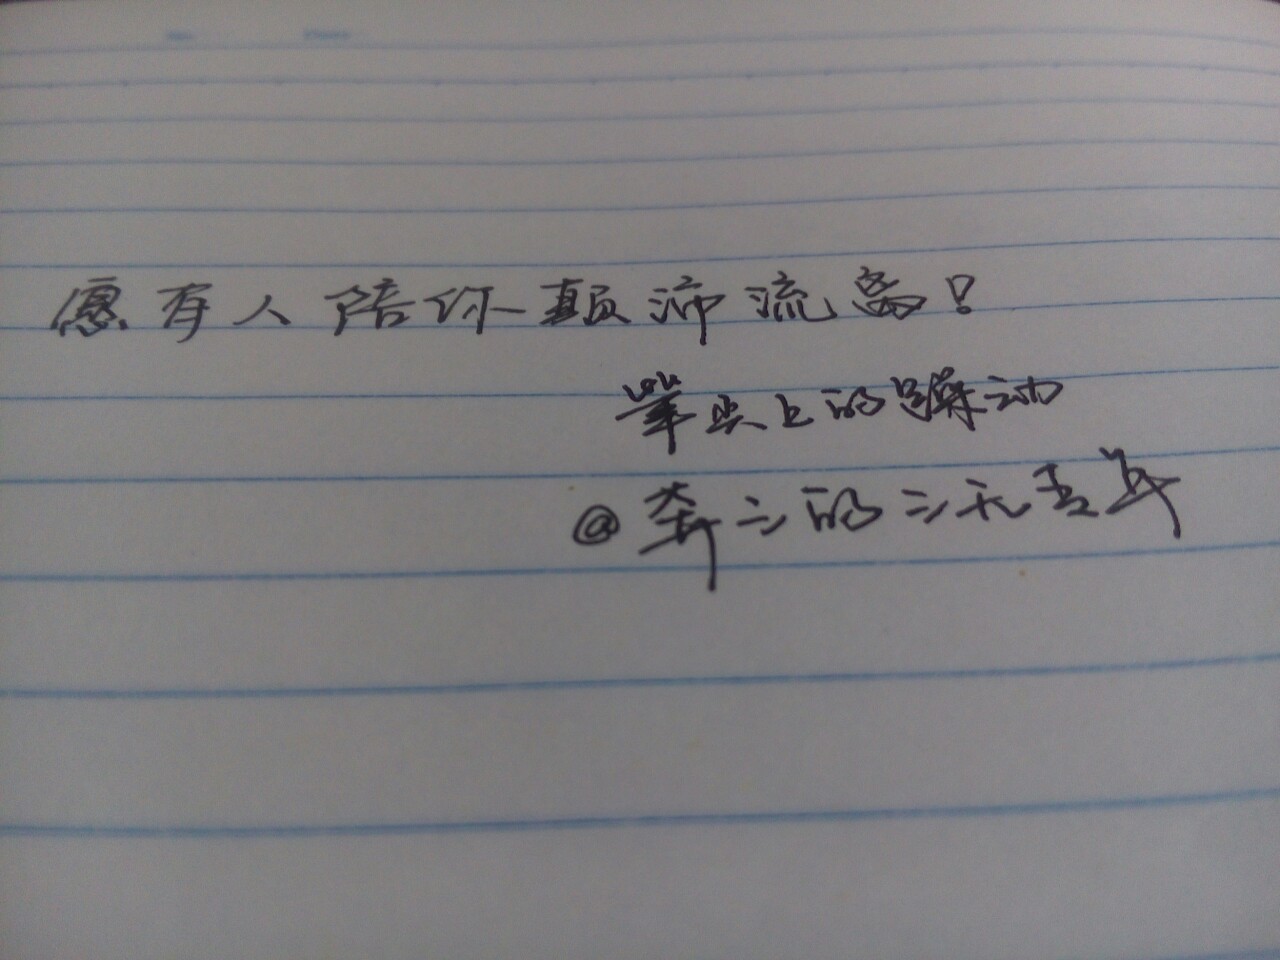 愿有人陪你颠沛流离！
笔尖上的躁动
@奔二的二无青年